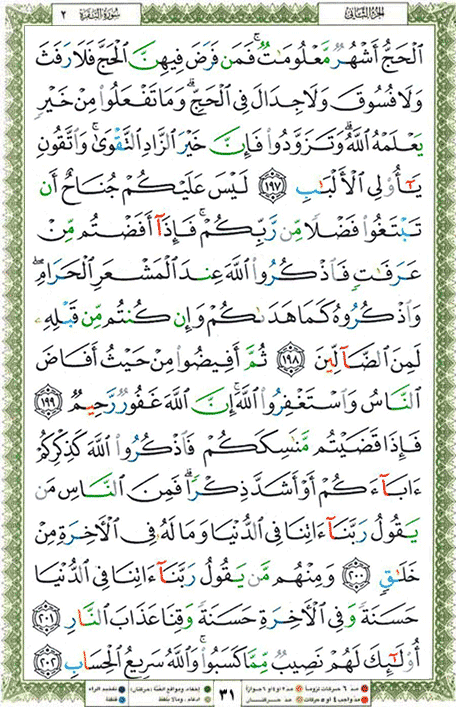 الجزء الثاني
سورة البقرة ٢
ٱلْحَجُّ أَشْهُرٌ مَّعْلُومَٰتٌ ۚ فَمَن فَرَضَ فِيهِنَّ ٱلْحَجَّ فَلَا رَفَثَ
وَلَا فُسُوقَ وَلَا جِدَالَ فِى ٱلْحَجِّ ۗ وَمَا تَفْعَلُوا۟ مِنْ خَيْرٍ
يَعْلَمْهُ ٱللَّهُ ۗ وَتَزَوَّدُوا۟ فَإِنَّ خَيْرَ ٱلزَّادِ ٱلتَّقْوَىٰ ۚ وَٱتَّقُونِ
يَٰٓأُو۟لِى ٱلْأَلْبَٰبِ ١٩٧ لَيْسَ عَلَيْكُمْ جُنَاحٌ أَن
تَبْتَغُوا۟ فَضْلًا مِّن رَّبِّكُمْ ۚ فَإِذَآ أَفَضْتُم مِّنْ
عَرَفَٰتٍ فَٱذْكُرُوا۟ ٱللَّهَ عِندَ ٱلْمَشْعَرِ ٱلْحَرَامِ ۖ
وَٱذْكُرُوهُ كَمَا هَدَىٰكُمْ وَإِن كُنتُم مِّن قَبْلِهِۦ
لَمِنَ ٱلضَّآلِّينَ ١٩٨ ثُمَّ أَفِيضُوا۟ مِنْ حَيْثُ أَفَاضَ
ٱلنَّاسُ وَٱسْتَغْفِرُوا۟ ٱللَّهَ ۚ إِنَّ ٱللَّهَ غَفُورٌ رَّحِيمٌ ١٩٩
فَإِذَا قَضَيْتُم مَّنَٰسِكَكُمْ فَٱذْكُرُوا۟ ٱللَّهَ كَذِكْرِكُمْ
ءَابَآءَكُمْ أَوْ أَشَدَّ ذِكْرًا ۗ فَمِنَ ٱلنَّاسِ مَن
يَقُولُ رَبَّنَآ ءَاتِنَا فِى ٱلدُّنْيَا وَمَا لَهُۥ فِى ٱلْأَخِرَةِ مِنْ
خَلَٰقٍ ٢٠٠ وَمِنْهُم مَّن يَقُولُ رَبَّنَآ ءَاتِنَا فِى ٱلدُّنْيَا
حَسَنَةً وَفِى ٱلْأَخِرَةِ حَسَنَةً وَقِنَا عَذَابَ ٱلنَّارِ ٢٠١
أُو۟لَٰٓئِكَ لَهُمْ نَصِيبٌ مِّمَّا كَسَبُوا۟ ۚ وَٱللَّهُ سَرِيعُ ٱلْحِسَابِ ٢٠٢
٣١
مد ٦ حركات لزوماً مد ٢ او ٤ او ٦ جوازاً إخفاء، ومواقع الغنّة (حركتان) تفخيم الراء
مد واجب ٤ او ٥ حركات مد حركتان ادغام، وما لا يلفظ قلقلة